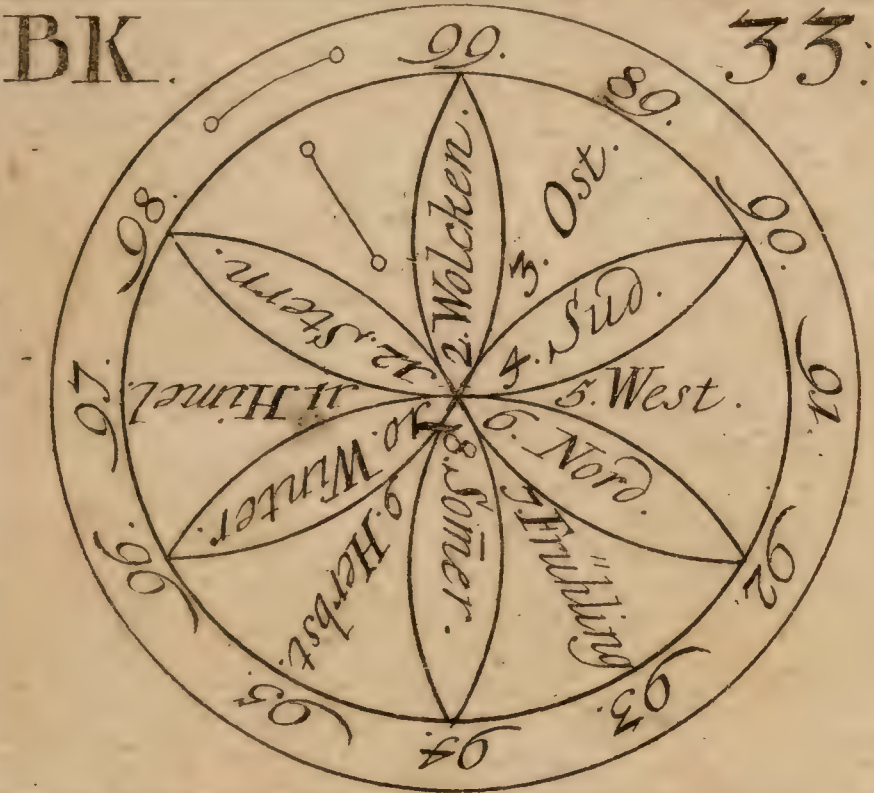 BK. 33.
99.
89.
90.
91.
92.
93.
94.
95.
96.
97.
98.
2.Wolcken.
3. Ost.
4. Sud.
5. West.
6. Nord.
7. Frühling
8. Som̄er.
9. Herbst.
10. Winter.
11 Himel.
12. Stern.